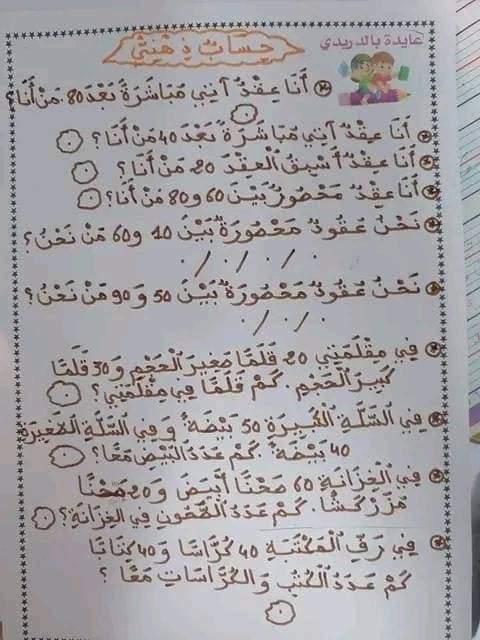 عايدة بالدريدي
حساب ذهني
أَنَا عِقْدٌ آتِي مُبَاشَرَةً بَعْدَ 80. مَنْ أَنَا؟
أَنَا عِقْدٌ آتِي مُبَاشَرَةً بَعْدَ 40 مَنْ أَنَا؟
أَنَا عِقْدٌ أَسْبِقُ الْعِقْدَ 20 مَنْ أَنَا؟
أَنَا عِقْدٌ مَحْصُورٌ بَيْنَ 60 و 80 مَنْ أَنَا؟
نَحْنُ عُقُودٌ مَحْصُورَةٌ بَيْنَ 10 و 60 مَنْ نَحْنُ؟
./././.
نَحْنُ عُقُودٌ مَحْصُورَةٌ بَيْنَ 50 وَ 90 مَنْ نَحْنُ؟
././.
فِي مِقْلَمَتِي 20 قَلَمًا صَغِيرَ الْحَجْمِ وَ 30 قَلَمًا
كَبِيرَ الْحَجْمِ. كَمْ قَلَمًا فِي مِقْلَمَتِي؟
فِي السَّلَّةِ الْكَبِيرَةِ 50 بَيْضَةً وَفِي السَّلَّةِ الصَّغِيرَةِ
40 بَيْضَةً. كَمْ عَدَدُ الْبَيْضِ مَعًا؟
فِي الْخِزَانَةِ 60 صَحْنًا أَبْيَضَ وَ 20 صَحْنًا
مُزَرْكَشًا. كَمْ عَدَدُ الصُّحُونِ فِي الْخِزَانَةِ؟
فِي رَفِّ الْمَكْتَبَةِ 40 كُرَّاسًا وَ 40 كِتَابًا
كَمْ عَدَدُ الْكُتُبِ وَالْكُرَّاسَاتِ مَعًا؟